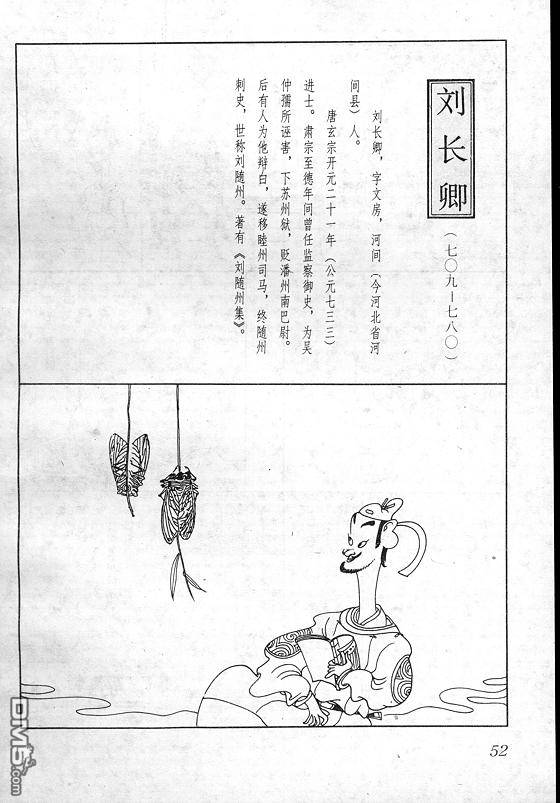 刘长卿
（七〇九－七八〇）
刘长卿，字文房，河间（今河北省河
间县）人。
唐玄宗开元二十一年（公元七三三）
进士。肃宗至德年间曾任监察御史，为吴
仲孺所诬害，下苏州狱，贬潘州南巴尉。
后有人为他辩白，遂移睦州司马，终随州
刺史，世称刘随州。著有《刘随州集》。
52
DM5.com